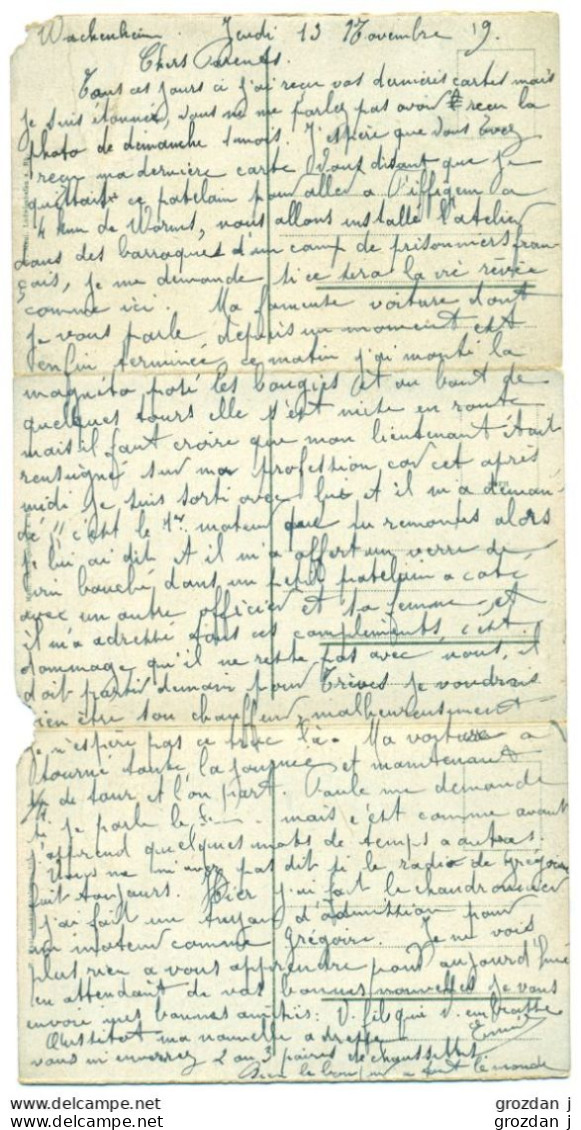 Wackenheim Jeudi 13 Novembre 19.
Chers Parents.
Tous ces jours ci j'ai reçu vos dernières cartes mais
je suis étonné, vous ne me parlez pas avoir reçu la
photo de dimanche 1 mois. J'espère que vous avez
reçu ma dernière carte vous disant que je
quittais ce patelain pour aller a Piffigem a
4 kum de Worms, nous allons installé l'atelier
dans des barraques d'un camp de prisonniers fran-
çais, je me demande si ce sera la vie rêvée
comme ici. Ma fameuse voiture dont
je vous parle depuis un moment est
enfin terminée, ce matin j'ai monté la
magnéto posé les bougies et au bout de
quelques tours elle s'est mise en route
mais il faut croire que mon lieutenant était
renseigné sur ma profession car cet après
midi je suis sorti avec lui et il m'a deman-
dé " c'est le 1er moteur que tu remontes alors
je lui ai dit et il m'a offert un verre de
vin bouché dans un petit patelain a coté
avec un autre officier et sa femme et
il m'a adressé tous ces compliments c'est
dommage qu'il ne reste pas avec nous, il
doit partir demain pour Trèves je voudrais
bien être son chauffeur, malheureusement
je n'espère pas ce truc là. Ma voiture a
tourné toute la journée et maintenant
1/4 de tour et l'on part. Paule me demande
si je parle le mais c'est comme avant
j'apprend quelques mots de temps a autres.
Vous ne m'avez pas dit si le radio de Grégoire
fait toujours. Hier j'ai fait le chaudronnier
j'ai fait un tuyau d'admission pour
un moteur comme Grégoire. Je ne vois
plus rien a vous apprendre pour aujourd'hui
en attendant de vos bonnes nouvelles je vous
envoie mes bonnes amitiés: V. fils qui v. embrasse
Aussitot ma nouvelle adresse
vous m'enverrez 2 au 3 paires de chaussettes
Bien le bonjour a tout le monde
grozdan j
grozdan j